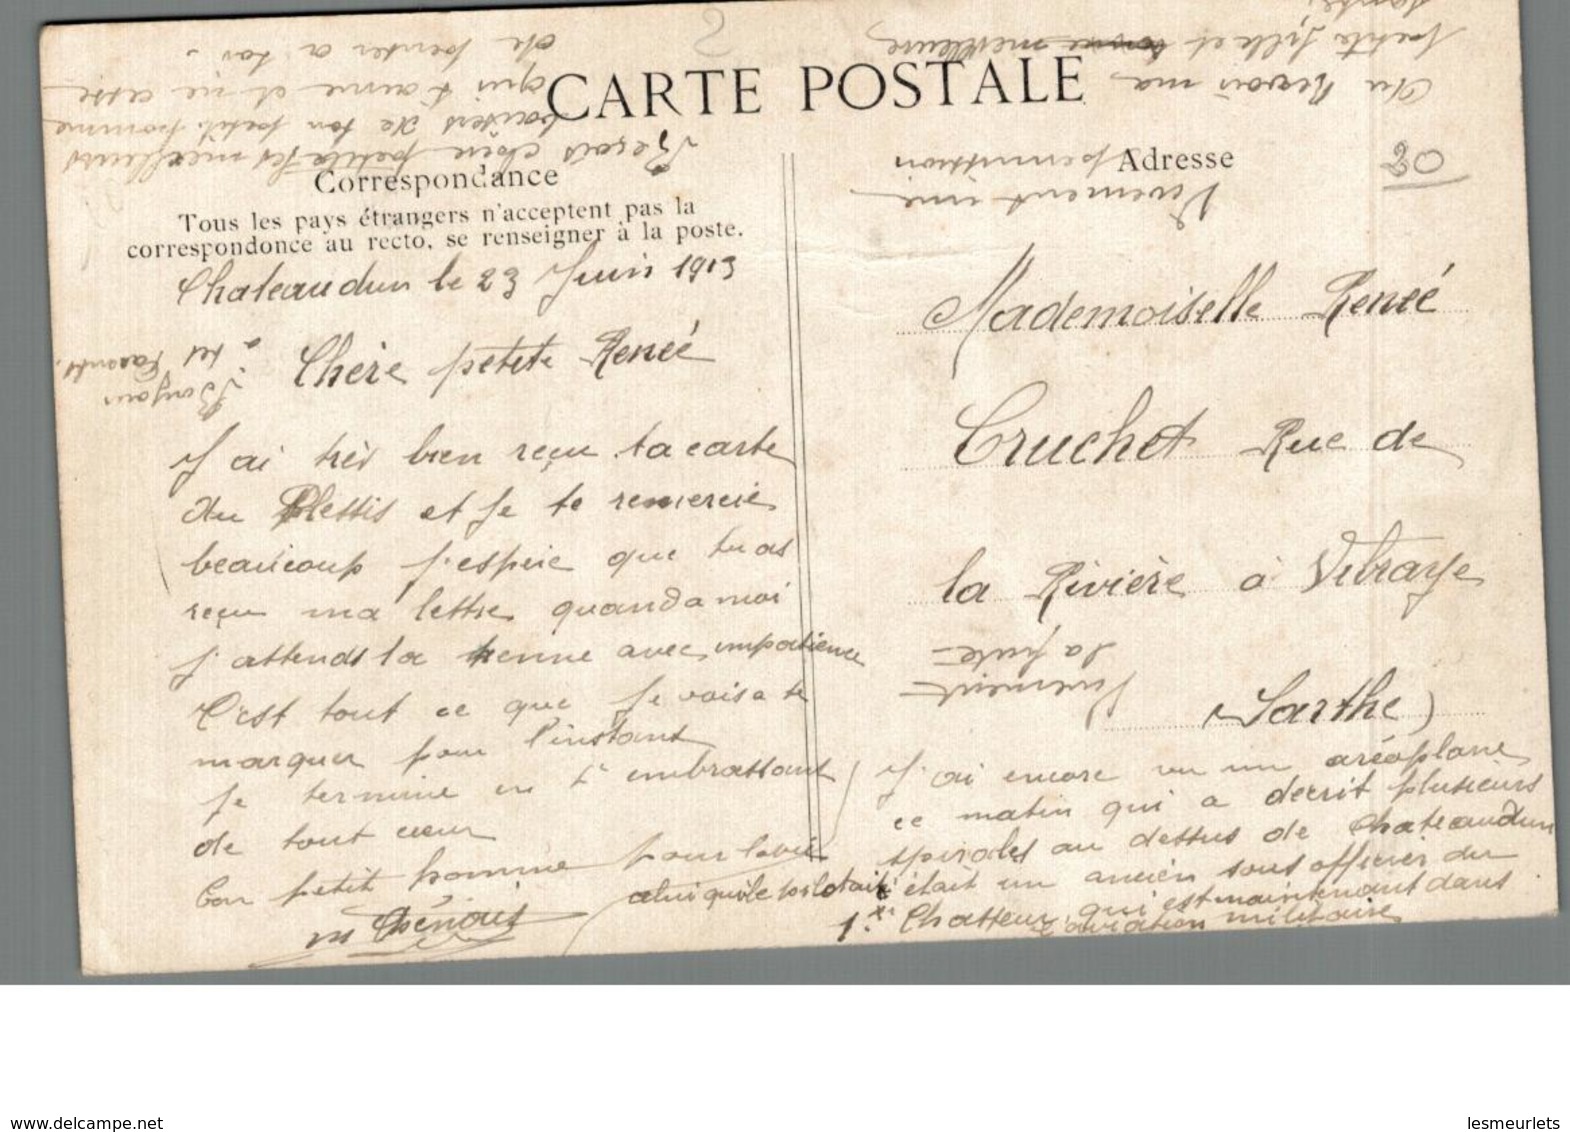 CARTE POSTALE
Correspondance
Tous les pays étrangers n'acceptent pas la
correspondonce au recto, se renseigner à la poste.
Chateaudun le 23 Juin 1913
Chère petite Renée
J'ai très bien reçu ta carte
du Plessis et je te remercie
beaucoup j'espère que tu as
reçu ma lettre quand a moi
j'attends la tienne avec impatience
C'est tout ce que je vois a te
marquer pour l'instant
je termine en t'embrassant
de tout cœur
Ton petit homme pour la vie
m Thénout
Reçois chère petite les meilleurs
baisers de ton petit homme
qui t'aime et ne cesse
de penser a toi.
Bonjour
a tes Parents.
Adresse
Mademoiselle Renée
Cruchet Rue de
la Rivière à Vibraye
(Sarthe)
J'ai encore vu un aréoplane
ce matin qui a decrit plusieurs
spirales au dessus de Chateaudun
celui qui le pilotait était un ancien sous officier du
1er Chasseur, qui est maintenant dans
l'aviation militaire
Vivement
la fuite
Vivement une
permission
Au Revoir ma
petite fille et meilleure
santé.
20
delcampe.net
lesmeurlets